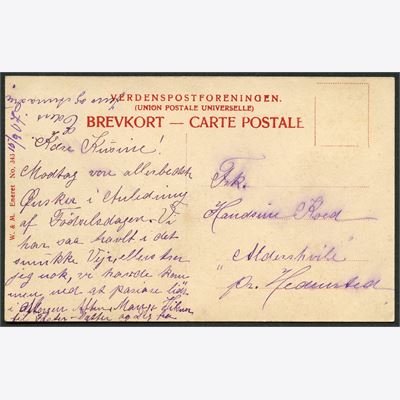 VERDENSPOSTFORENINGEN.
(UNION POSTALE UNIVERSELLE)
BREVKORT — CARTE POSTALE
W. & M. Eneret No. 343
Kære Kusine!
Modtag vore allerbedste
Ønsker i Anledning
af Fødselsdagen. Vi
har saa travlt i det
smukke Vejr, ellers
jeg nok, vi havde kom
men ned at passiare lidt
i Aften. Mange Hilsner
til
Frk.
Handsine Koed
"Aldershvile"
pr. Hedensted